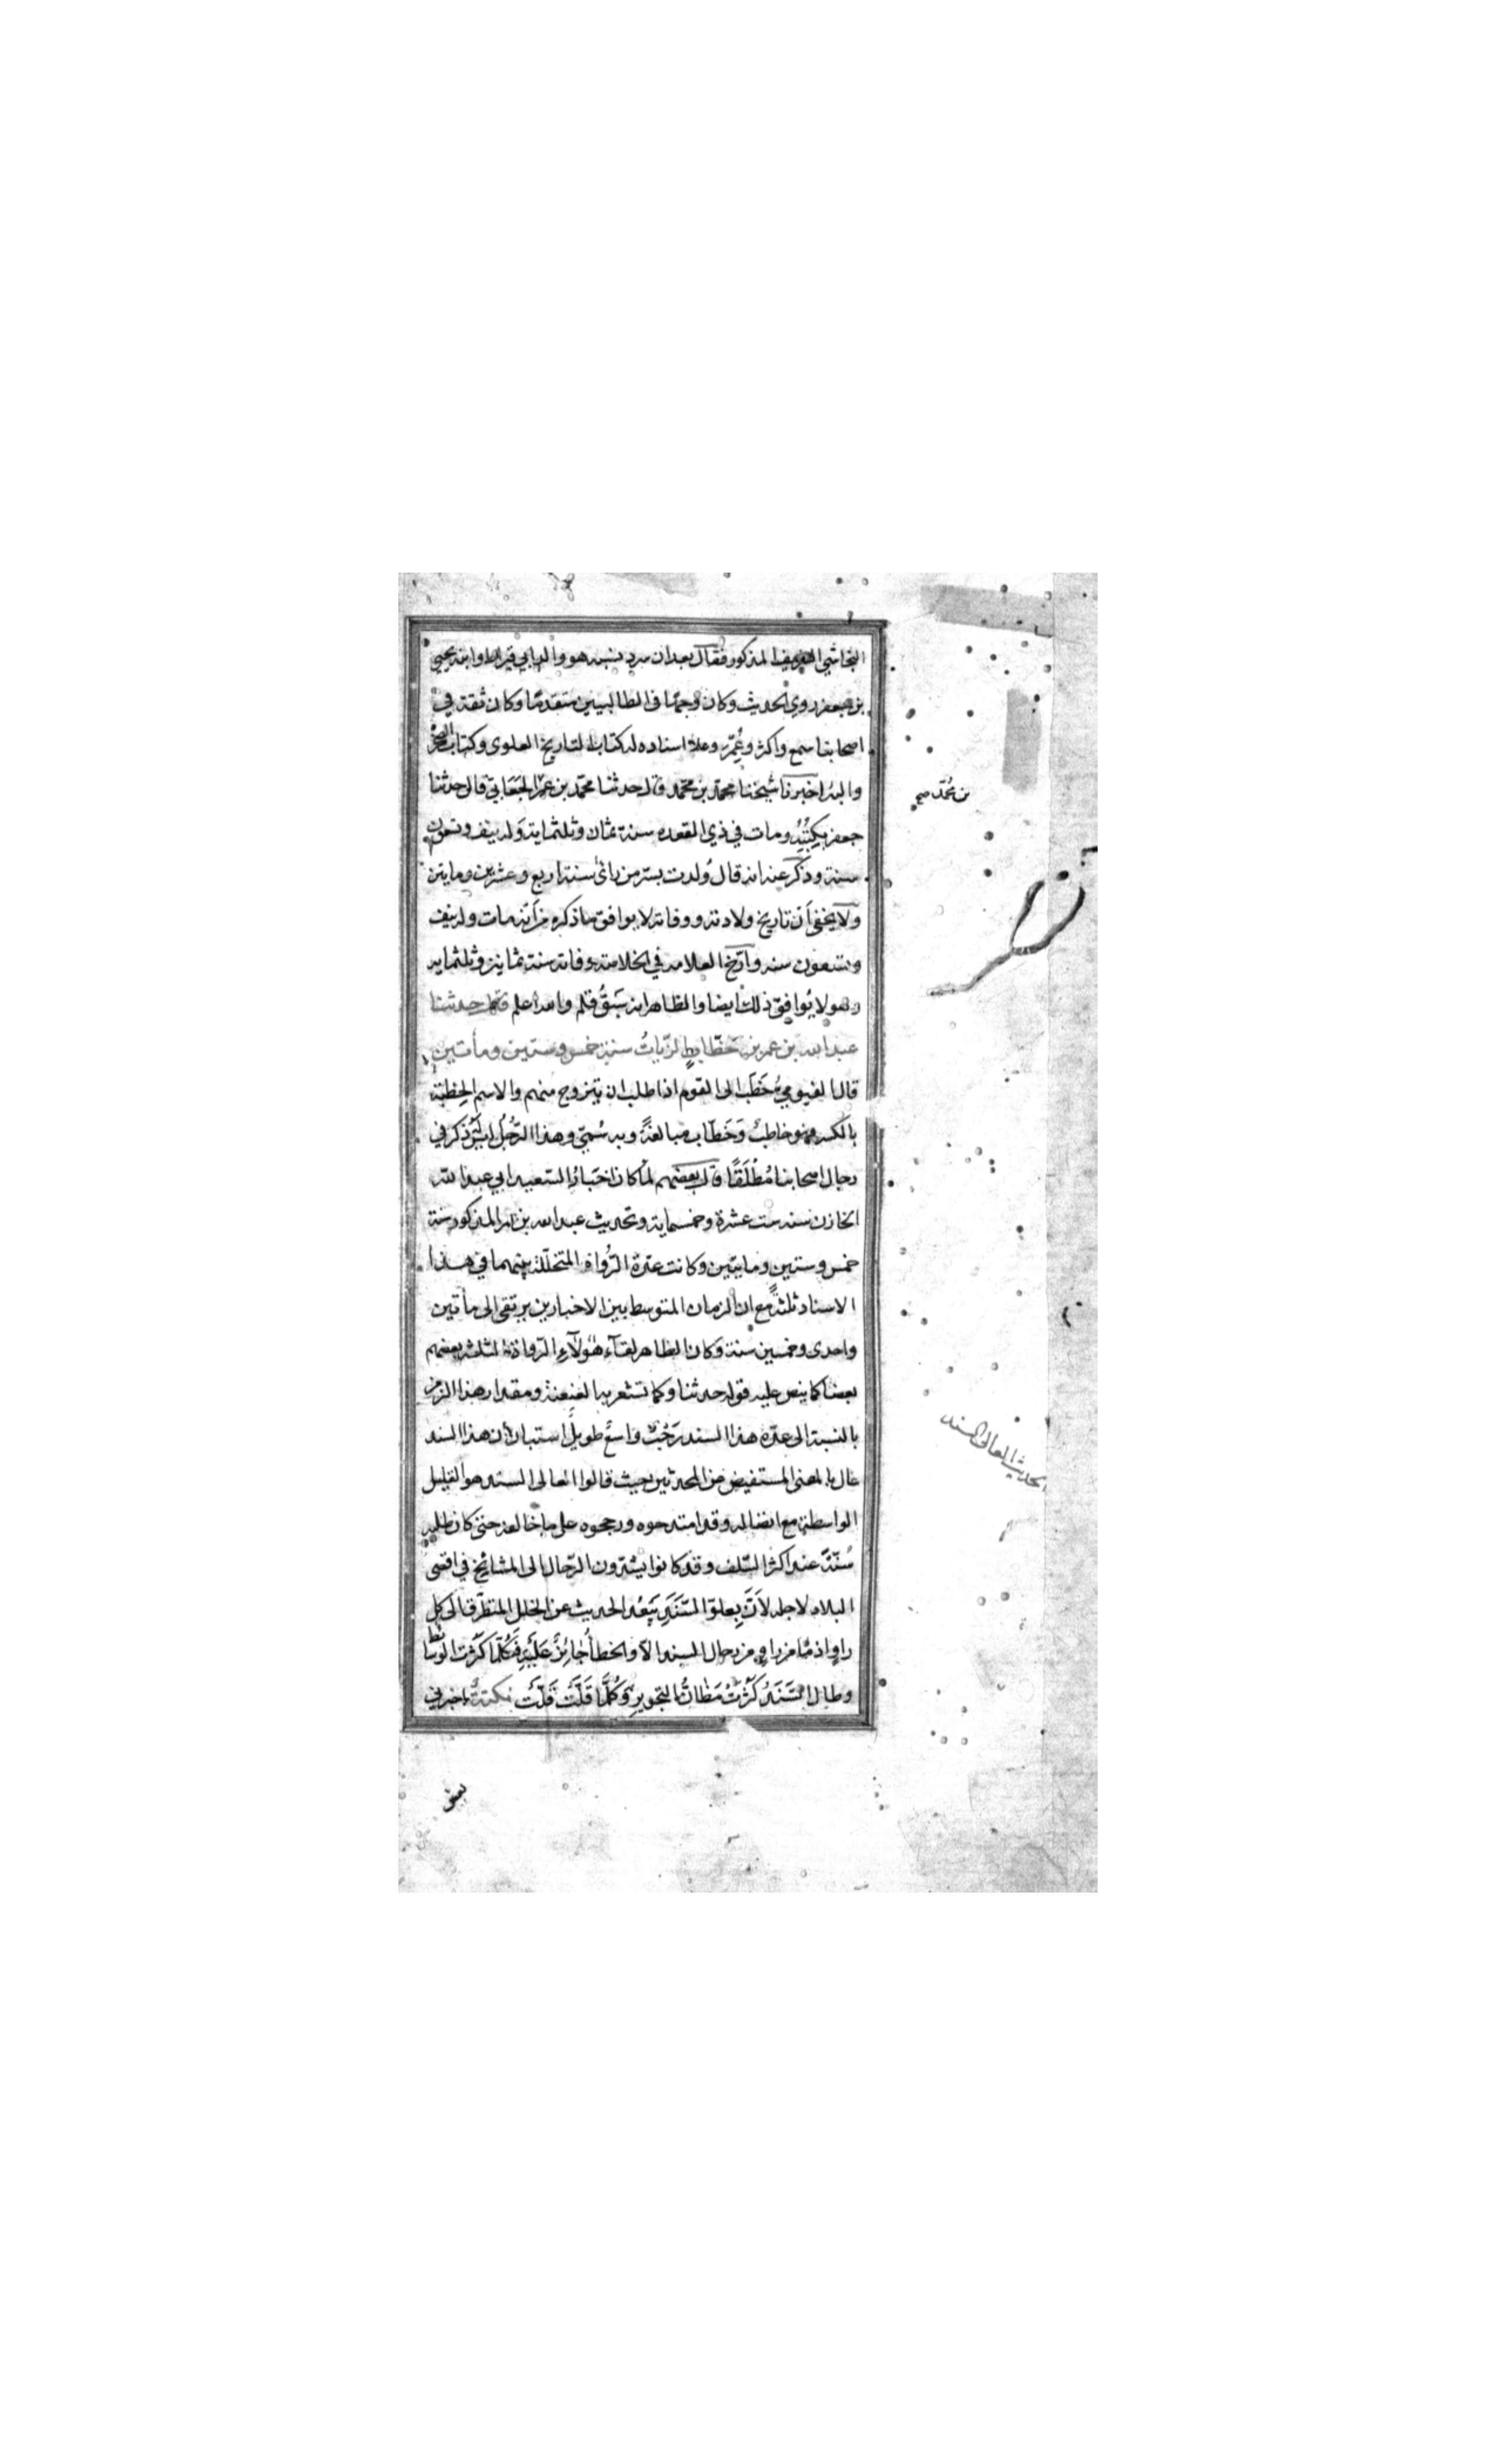 النجاشي الشريف المذكور فقال بعد ان سرد نسبه هو والد ابي قيراط وابنه يحيى
بن جعفر روي الحديث وكان وجها في الطالبيين متقدما وكان ثقة في
اصحابنا سمع واكثر وعُمِّر وعلا اسناده له كتاب التاريخ العلوي وكتاب الصخرة
والبئر اخبرنا شيخنا محمد بن محمد قال حدثنا محمد بن عمر الجعابي قال حدثنا
جعفر بكتبه ومات في ذي القعده سنة ثمان وثلثماية وله نيف وتسعون
سنة وذكر عنه انه قال وُلدت بسر من رأى سنة اربع وعشرين ومايتين
ولا يخفى أن تاريخ ولادته ووفاته لا يوافق ما ذكره من أنه مات وله نيف
وتسعون سنه وأرّخ العلامه في الخلاصة وفاته سنة ثمانين وثلثمايه
وهو لا يُوافق ذلك ايضا والظاهر انه سَبَقُ قلم والله اعلم قال حدثنا
عبد الله بن عمر بن خطّاب الزيات سنة خمس وستين ومأتين
قال الفيومي خَطَبَ الى القوم اذا طلب ان يتزوج منهم والاسم الخِطْبَة
بالكسر فهو خاطبٌ وَخَطّاب مبالغةً وبه سُمّي وهذا الرَّجُلُ ليس له ذكر في
رجال اصحابنا مُطْلَقًا قال بعضهم لما كان اخبارُ السعيد ابي عبد الله
الخازن سنه ست عشرة وخمسماية وتحديث عبد الله بن عمر المذكور سنة
خمس وستين ومايتين وكانت عدة الرُّواة المتخلّلة بينهما في هذا
الاسناد ثلثةً مع ان الزمان المتوسط بين الاخبارين يرتقي الى مأتين
واحدى وخمسين سنة وكان الظاهر لقآء هٰؤلآءِ الرّواة الثلثة بعضهم
بعضا كما ينص عليه قوله حدثنا وكما تشعر به العنعنة ومقدار هذا الزمن
بالنسبة الى عدّة هذا السند رَحْبٌ واسعٌ طويلٌ استبان أن هذا السند
عال بالمعنى المستفيض من المحدثين بحيث قالوا العالى السند هو القليل
الواسطة مع اتصاله وقد امتدحوه ورجحوه على ما خالفه حتى كان طلبه
سُنّةً عند اكثر السّلف وقد كانوا يشدّون الرّحال الى المشائخ في اقصى
البلاد لاجله لأنّ بِعلوّ السَّنَدِ يَبْعُد الحديث عن الخلل المتطرّق الى كل
راوٍ اذ ما من راوٍ من رجال السند الا والخطأُ جائزٌ عَلَيْهِ فَكُلّما كَثُرت الوسائط
وطال السَّنَدُ كَثُرَتْ مَظانُّ التجويزِ وَكُلَّمَا قَلَّتْ قَلَّتْ نكتةٌ اخبرني
بن محمّد صح
الحديث العالي السند
بعض